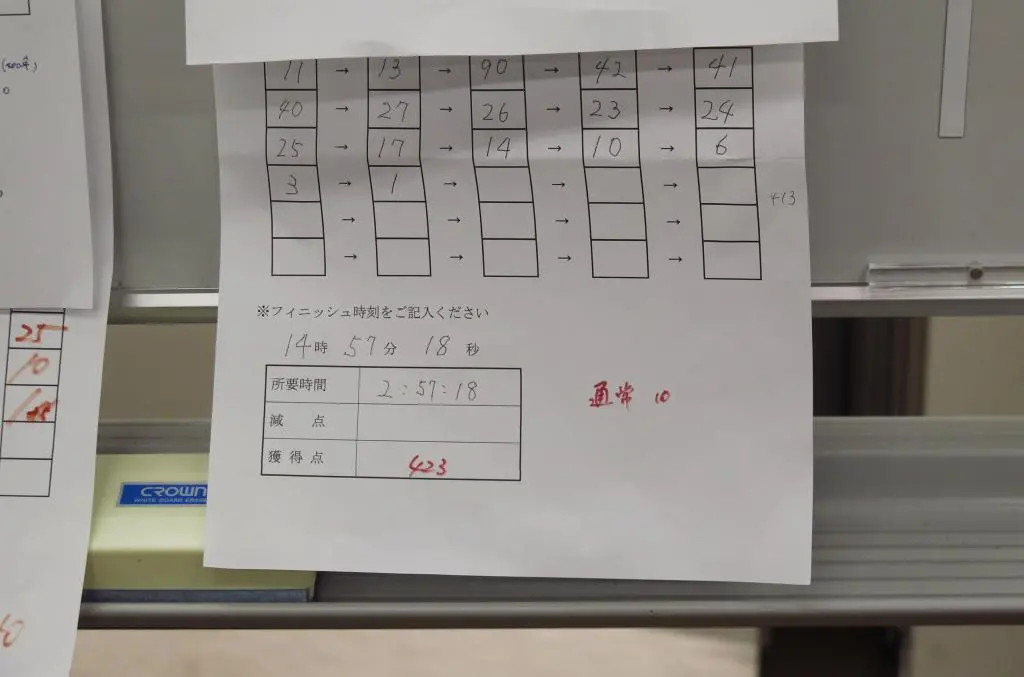 11 → 13 → 90 → 42 → 41
40 → 27 → 26 → 23 → 24
25 → 17 → 14 → 10 → 6
3 → 1 → → →
→ → → →
→ → → →
413
※フィニッシュ時刻をご記入ください
14時 57分 18秒
所要時間 2:57:18
減 点
獲得点 423
通常 10
25
10
CROWN
WHITE BOARD ERASER